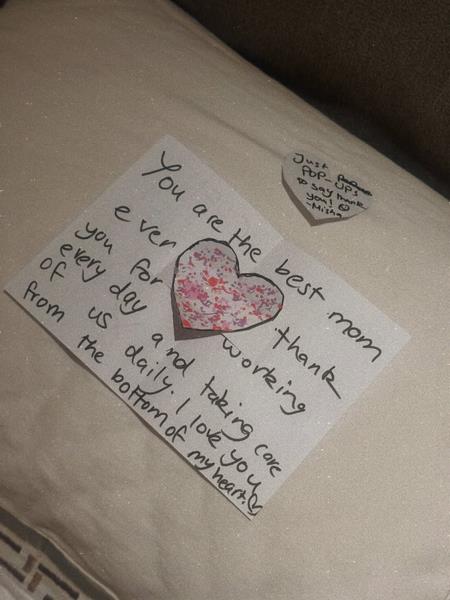 You are the best mom
ever thank
you for working
every day and taking care
of us daily. I love you
from the bottom of my heart.
Just
POP-UPS
to say thank
you! ☺
-Misha